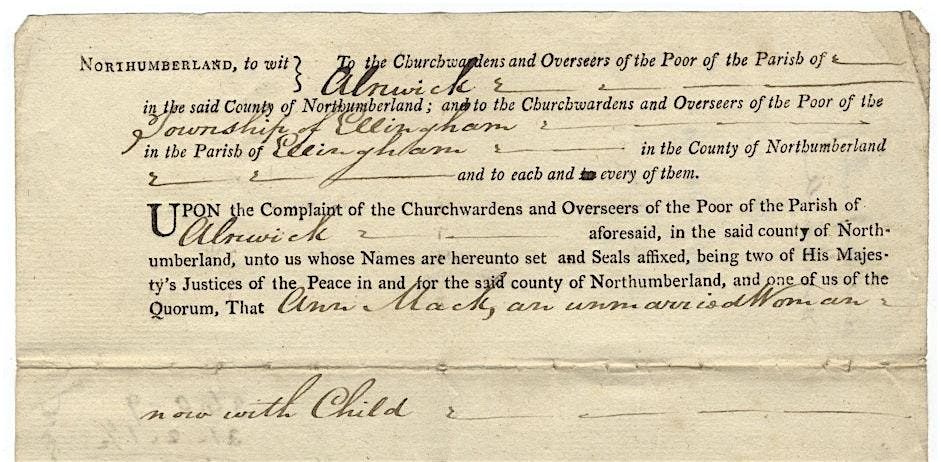 NORTHUMBERLAND, to wit } To the Churchwardens and Overseers of the Poor of the Parish of
Alnwick
in the said County of Northumberland; and to the Churchwardens and Overseers of the Poor of the
Township of Ellingham
in the Parish of Ellingham in the County of Northumberland
and to each and to every of them.
UPON the Complaint of the Churchwardens and Overseers of the Poor of the Parish of
Alnwick aforesaid, in the said county of North-
umberland, unto us whose Names are hereunto set and Seals affixed, being two of His Majes-
ty's Justices of the Peace in and for the said county of Northumberland, and one of us of the
Quorum, That Ann Mack, an unmarried Woman
now with Child